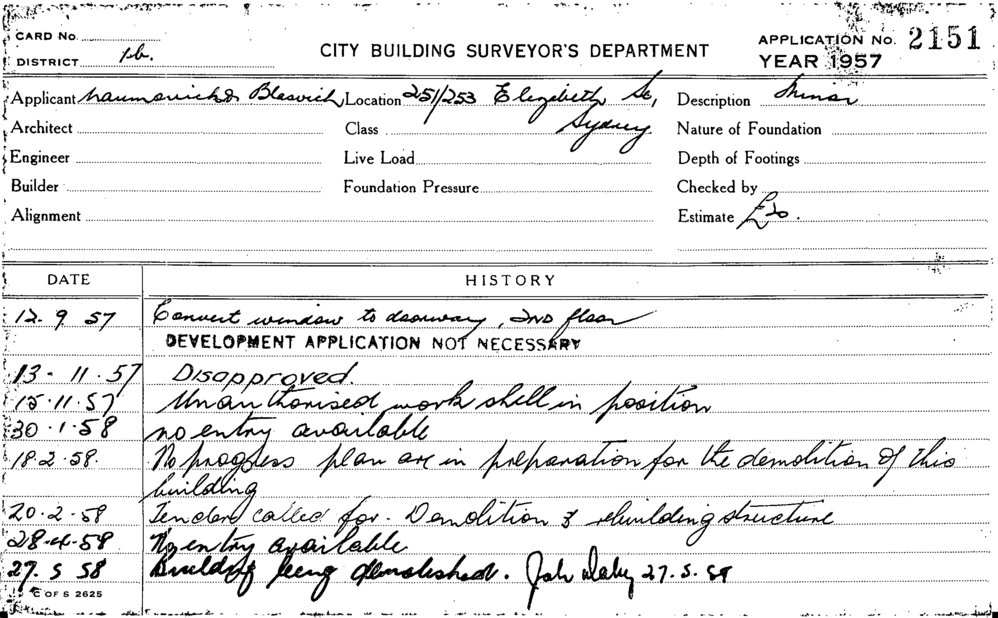 CARD No.
DISTRICT 1b.
CITY BUILDING SURVEYOR'S DEPARTMENT
APPLICATION No. 2151
YEAR 1957
Applicant Naumovich & Blasvich Location 251/253 Elizabeth St, Description Minor
Architect Class Sydney Nature of Foundation
Engineer Live Load Depth of Footings
Builder Foundation Pressure Checked by
Alignment Estimate
DATE HISTORY
12. 9. 57 Convert window to doorway, 2ND floor
DEVELOPMENT APPLICATION NOT NECESSARY
13 - 11 - 57 Disapproved.
15.11.57 Unauthorised work shell in position
30 . 1 . 58 no entry available
18.2.58. No progress plan are in preparation for the demolition of this
building
20.2.58 Tenders called for. Demolition & rebuilding structure
28.4.58 No entry available
27. 5 58 Building being demolished. 27.5.58
C OF S 2625